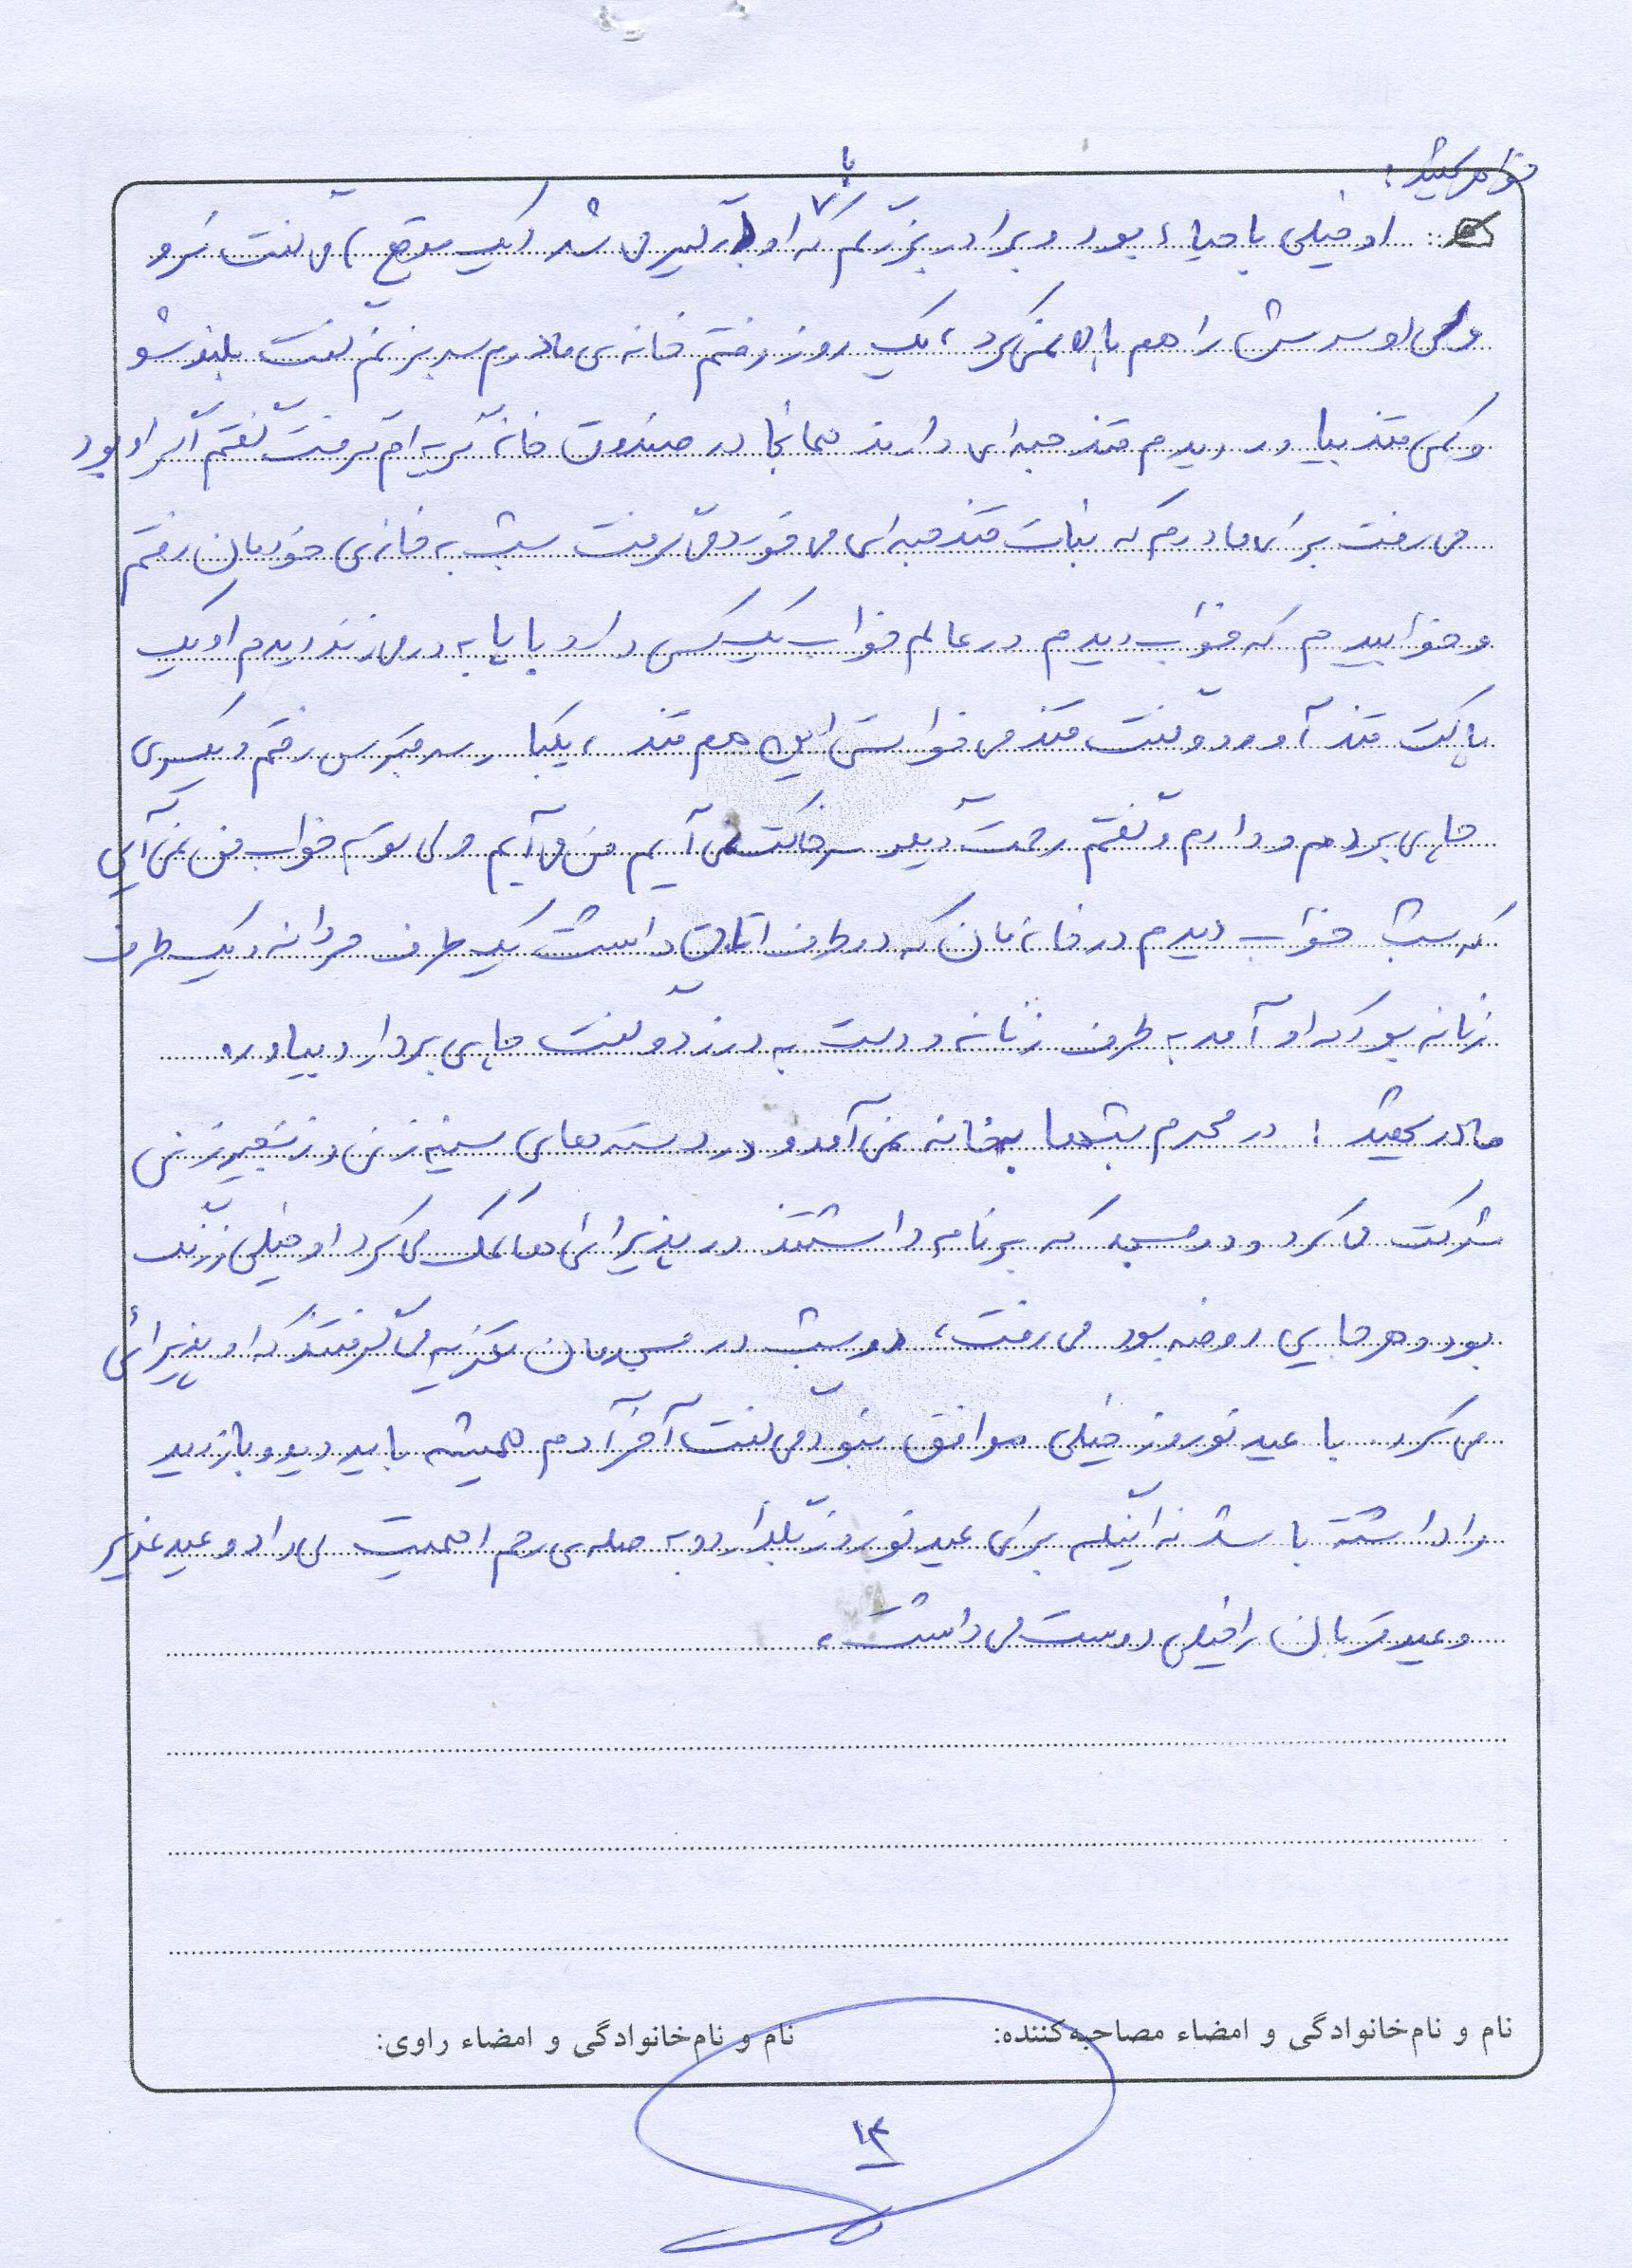 خواهر شهید:
او خیلی با حیاء بود و برادر بزرگم که با او درگیر می شد (یک موقع) می گفت نرو
ولی او سرش را هم بالا نمی کرد، یک روز رفتم خانه ی مادرم پسر بزرگم گفت بلند شو
و کمی قند بیاور دیدم قند حبه ای دارند همانجا در صندوق خانه گریه ام گرفت گفتم اگر او بود
می رفت برای مادرم که نبات قند حبه ای می خورد می گرفت شب به خانه ی خودمان رفتم
و خوابیدم که خواب دیدم در عالم خواب یک کسی دارد با پا به در می زند دیدم او یک
پاکت قند آورد و گفت قند می خواستی این هم قند، یکبار سر قبرش رفتم و یکسری
چایی بردم و دادم و گفتم رحمت دیگر سر خاکت نمی آیم من می آیم ولی تو به خواب من نمی آیی
که شب خواب دیدم در خانه مان که دو طرف اتاق داشت یک طرف مردانه و یک طرف
زنانه بود که او آمد به طرف زنانه و دست به در زد و گفت چایی بردار و بیاور.
مادر شهید: در محرم شبها به خانه نمی آمد و در دسته های سینه زنی و زنجیر زنی
شرکت می کرد و در مسجد که برنامه داشتند در پذیرائی ها کمک می کرد او خیلی زرنگ
بود و هر جایی روضه بود می رفت، دو شب در مسجدمان تعزیه می گرفتند که او پذیرائی
می کرد. با عید نوروز خیلی موافق نبود می گفت آخر آدم همیشه باید دید و بازدید
را داشته باشد نه اینکه برای عید نوروز بگذارد و به صله ی رحم اهمیت می داد و عید غدیر
و عید قربان را خیلی دوست می داشت.
نام و نام‌خانوادگی و امضاء مصاحبه‌کننده: نام و نام‌خانوادگی و امضاء راوی:
۱۳